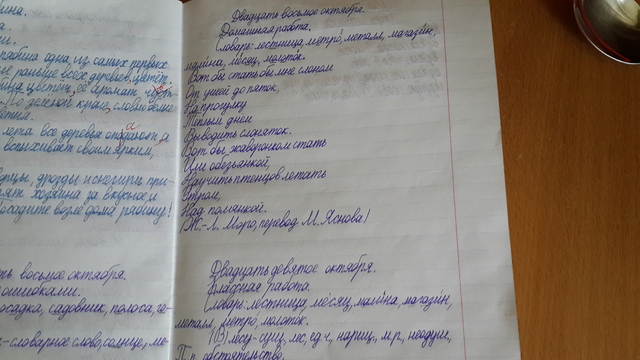 бина.
а.
ки.
рябина одна из самых первых
её раньше всех деревьев, цветёт
цветки, её аромат чует
По зелёной краю, словно белые
лета все деревья опадают, а
вспыхивает своим ярким,
дрозды и снегири при-
дят хозяина за вкусное и
посадите возле дома рябину!
ть восьмое октября.
ошибками.
осадка, садовник, полоса, че-
- словарное слово, солнце, ме-
Двадцать восьмое октября.
Домашняя работа.
Словарь: лестница, метро, металл, магазин,
малина, месяц, молоток.
Вот бы стать бы мне слоном
От ушей до пяток,
На прогулку
Тёплым днём
Выводить слоняток.
Вот бы жаворонком стать
Или обезьянкой,
Научить птенцов летать
Утром,
Над полянкой.
(Ж.-Л. Моро, перевод М. Яснова)
Двадцать девятое октября.
Классная работа.
Словарь: лестница, месяц, малина, магазин,
металл, метро, молоток.
(ПЗ) лесу - сущ., лес, ед.ч., нариц., м.р., неодуш.,
П.п. обстоятельство.